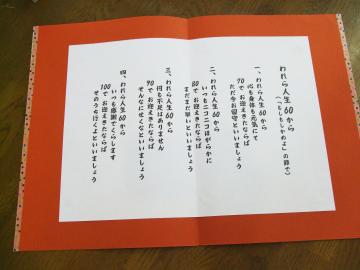 われら人生60から
（「もしもしかめよ」の節で）
一、われら人生60から
心も身体も元気にて
70でお迎えきたならば
ただ今お留守といいましょう
二、われら人生60から
いつもニコニコほがらかに
80でお迎えきたならば
まだまだ早いといいましょう
三、われら人生60から
何も不足はありません
90でお迎えきたならば
そんなにせくなといいましょう
四、われら人生60から
いつも感謝でくらします
100でお迎えきたならば
そのうち行くよといいましょう